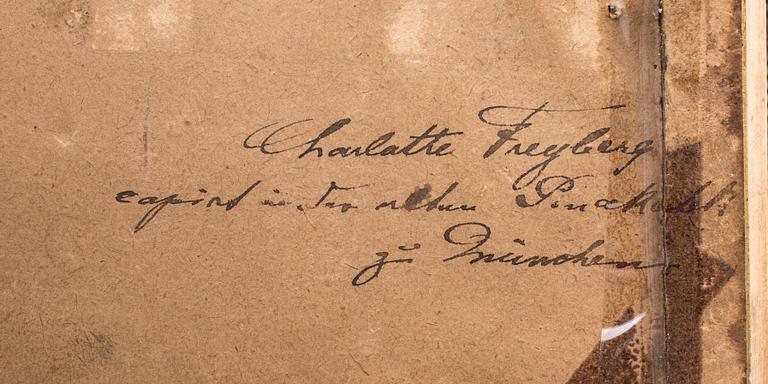 Charlatte Freyberg
capirt in der alten Pinakothek
zu München.